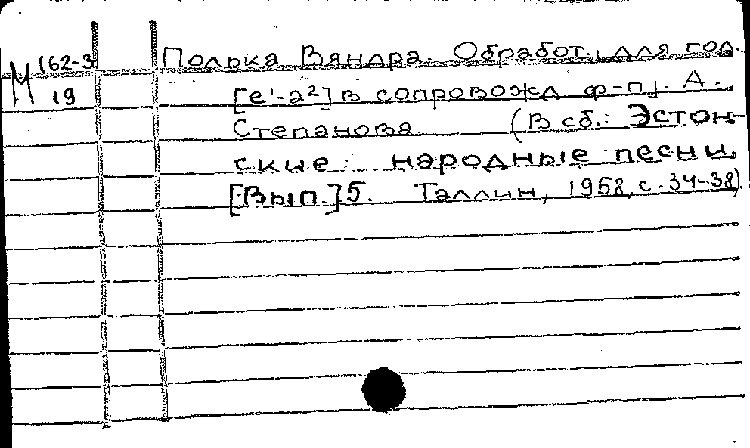 М 162-3
19
Полька Вяндра. Обработ. для гол.
[e¹-a²] в сопровожд. ф-п. А.
Степанова (В сб.: Эстон-
ские народные песни.
[Вып.] 5. Таллин, 1958, с. 34-38)